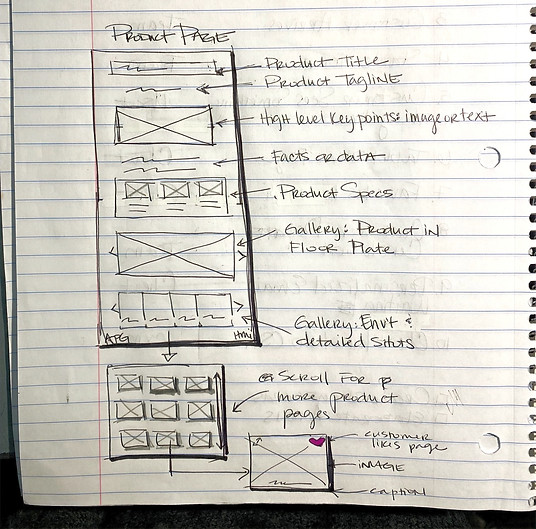 Product Page
Product Title
Product Tagline
High level key points: image or text
Facts or data
Product Specs
Gallery: Product in
Floor Plate
Gallery: Envt &
detailed
Scroll for
more product
pages
customer
likes page
image
caption